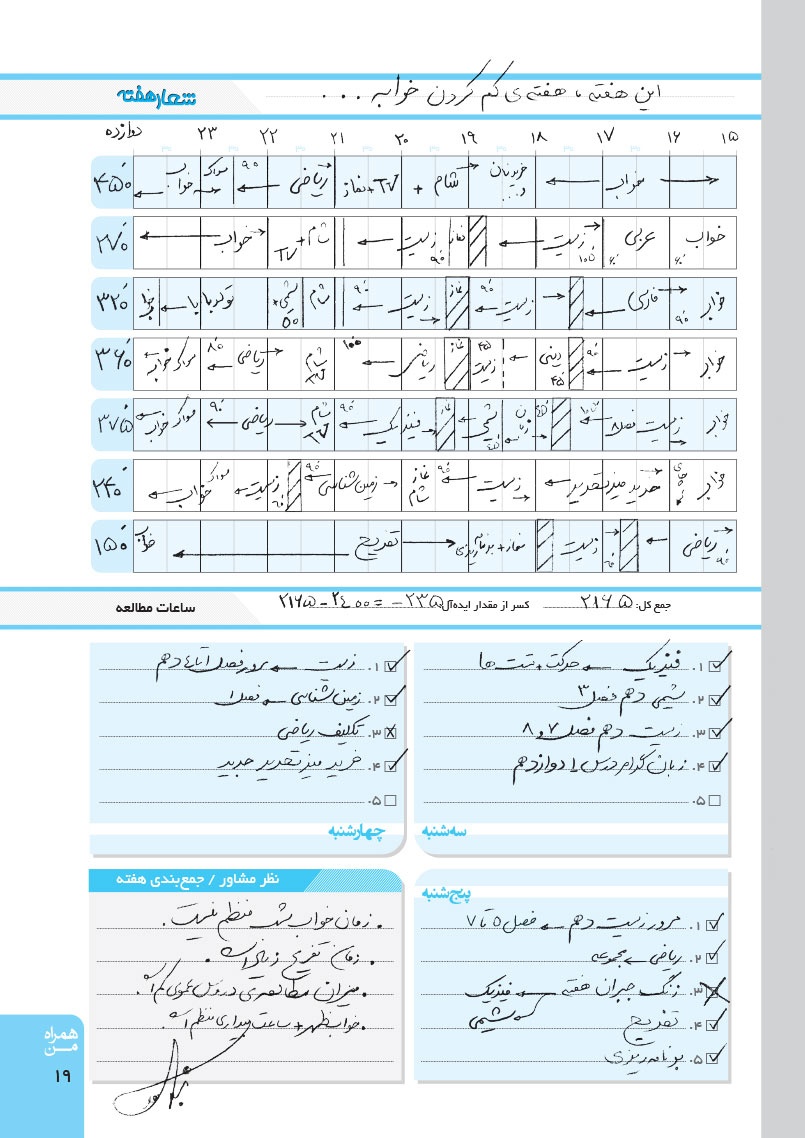 شعار هفته
این هفته، هفته‌ی کم کردن خوابه ...
۱۵ ۱۶ ۱۷ ۱۸ ۱۹ ۲۰ ۲۱ ۲۲ ۲۳ دوازده
خواب خرید نان و... شام + TV + نماز ریاضی ۹۰ مسواک خواب ۴۵۰
خواب ۶۰ عربی ۶۰ زیست ۱۰۵ نماز زیست ۹۰ شام + TV خواب ۲۷۰
خواب ۹۰ فارسی زیست ۹۰ نماز زیست ۹۰ شام شیمی + ۵۰ تولد بابا خواب ۳۲۰
خواب زیست ۹۰ دینی ۴۵ زیست ۴۵ نماز ریاضی ۱۰۰ شام TV ریاضی ۸۰ مسواک خواب ۳۶۰
خواب زیست فصل ۸ ۱۰۵ زبان شیمی ۴۵ نماز فیزیک ۹۰ شام TV ریاضی ۹۰ مسواک خواب ۳۷۵
خواب چای خرید میز تحریر زیست ۹۰ نماز شام زمین‌شناسی ۹۰ زیست ۶۰ مسواک خواب ۲۴۰
ریاضی ۹۰ زیست ۶۰ نماز + برنامه‌ریزی تفریح خواب ۱۵۰
ساعات مطالعه
جمع کل: ۲۱۶۵ کسر از مقدار ایده‌آل: ۲۱۶۵ - ۲۴۰۰ = -۲۳۵
۱. فیزیک ← حرکت + تست ها
۲. شیمی دهم فصل ۳
۳. زیست دهم فصل ۷ و ۸
۴. زبان درس ۱ دوازدهم
۵.
سه‌شنبه
۱. زیست ← مرور فصل ۱ تا ۴ دهم
۲. زمین‌شناسی ← فصل ۱
۳. تکلیف ریاضی
۴. خرید میز تحریر جدید
۵.
چهارشنبه
پنج‌شنبه
۱. مرور زیست دهم ← فصل ۵ تا ۷
۲. ریاضی ← مجموعه
۳. زنگ جبران هفته ← فیزیک
← شیمی
۴. تفریح
۵. برنامه‌ریزی
نظر مشاور / جمع‌بندی هفته
• زمان خواب شب منظم نیست.
• زمان تفریح زیاد است.
• میزان مطالعه‌ی دروس عمومی کم است.
• خواب ظهر + ساعت بیداری منظم است.
همراه
من
۱۹